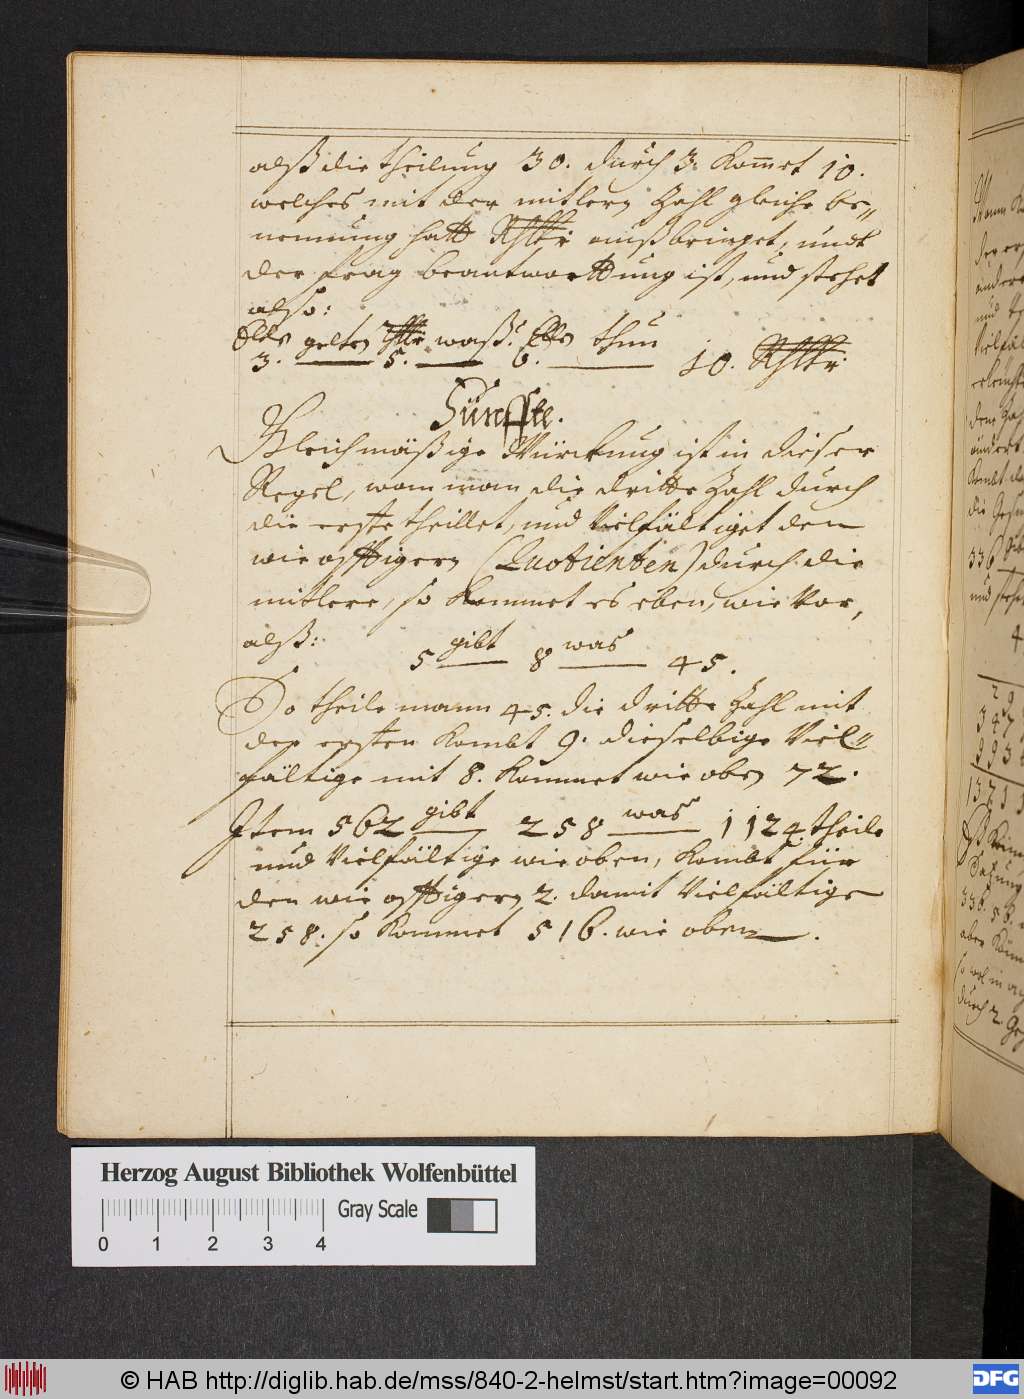 alß die theilung 30. durch 3. Kom̄et 10.
welches mit der mitlern Zahl gleiche be„
nennung hatt Rthlr außbringet, undt
der frag beantworttung ist, und stehet
also:
gelten Rthlr waß? thun
3. 5. 6. 10. Rthlr
Fünffte.
Gleichmäßige Würckung ist in dieser
Regel, wann man die dritte Zahl durch
die erste theillet, und Vielfältiget den
wie offtigern (Quotienten) durch die
mitlere, so Kommet es eben, wie Vor,
alß:
5 gibt 8 was 45.
So theile mann 45. die dritte Zahl mit
der ersten Kombt 9. dieselbige Viel„
fältige mit 8. Kommet wie oben 72.
Item 562 gibt 258 was 1124. theile
und Vielfältige wie oben, Kombt für
den wie offtigern 2. damit Vielfältige
258. so Kommet 516. wie oben.
Herzog August Bibliothek Wolfenbüttel
Gray Scale
0 1 2 3 4
© HAB http://diglib.hab.de/mss/840-2-helmst/start.htm?image=00092
DFG